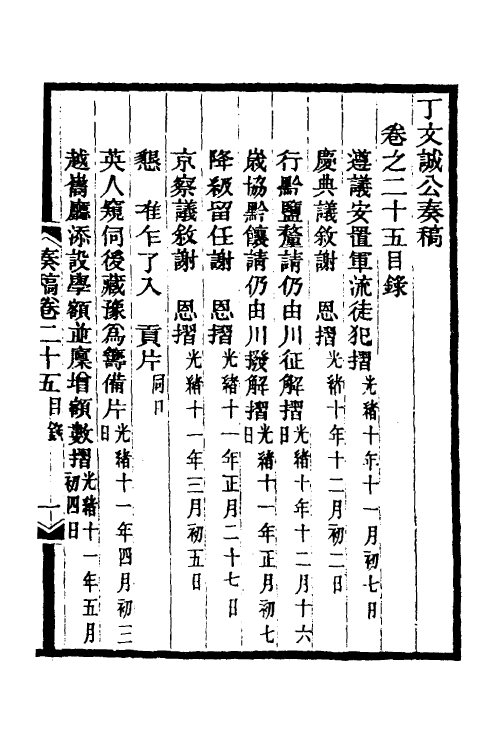 丁文誠公奏稿
卷之二十五目錄
遵議安置軍流徒犯摺光緒十年十一月初七日
慶典議敘謝　恩摺光緒十年十二月初二日
行黔鹽釐請仍由川征解摺光緒十年十二月十六日
歲協黔饟請仍由川撥解摺光緒十一年正月初七日
降級留任謝　恩摺光緒十一年正月二十七日
京察議敘謝　恩摺光緒十一年三月初五日
懇　准乍丫入　貢片同日
英人窺伺後藏豫為籌備片光緒十一年四月初三日
越巂廳添設學額並廩增額數摺光緒十一年五月初四日
奏稿卷二十五目錄　一